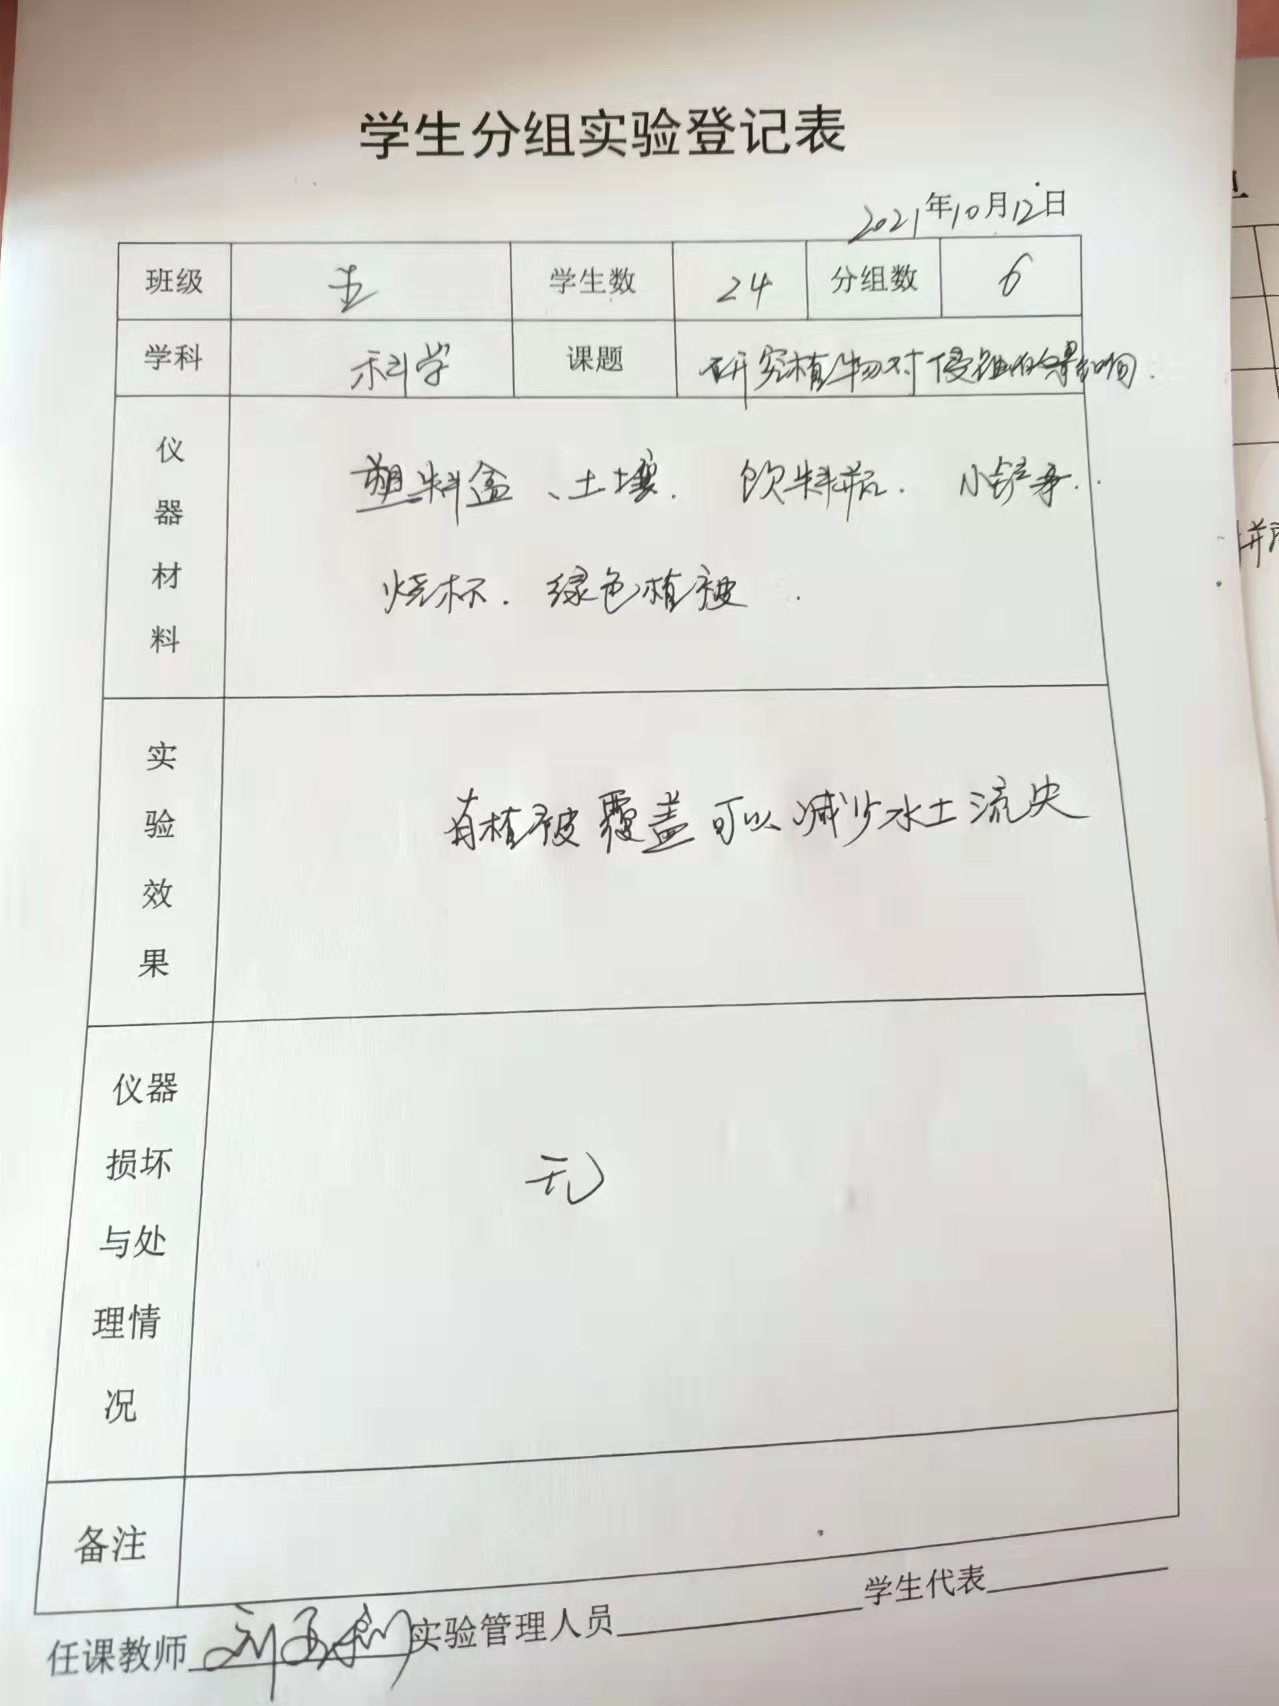 学生分组实验登记表
2021年10月12日
班级 五 学生数 24 分组数 6
学科 科学 课题 研究植物对侵蚀的影响.
仪器材料
塑料盒、土壤. 饮料瓶. 小铲子..
烧杯. 绿色植被.
实验效果
有植被覆盖可以减少水土流失
仪器
损坏
与处
理情
况
无
备注
任课教师 刘 利 实验管理人员 学生代表